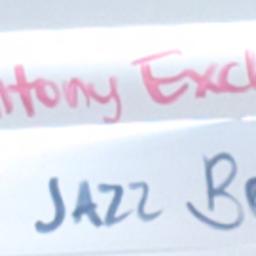 ltony Excl
JAZZ Be